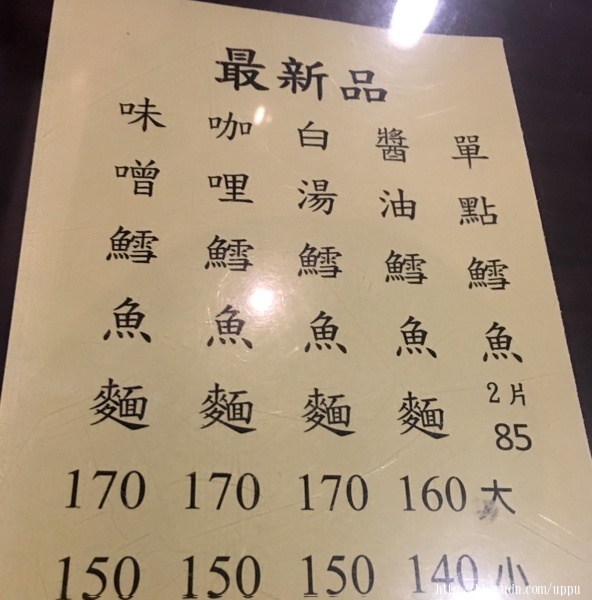 最新品
單點鱈魚
2片
85
醬油鱈魚麵
白湯鱈魚麵
咖哩鱈魚麵
味噌鱈魚麵
170 170 170 160 大
150 150 150 140 小